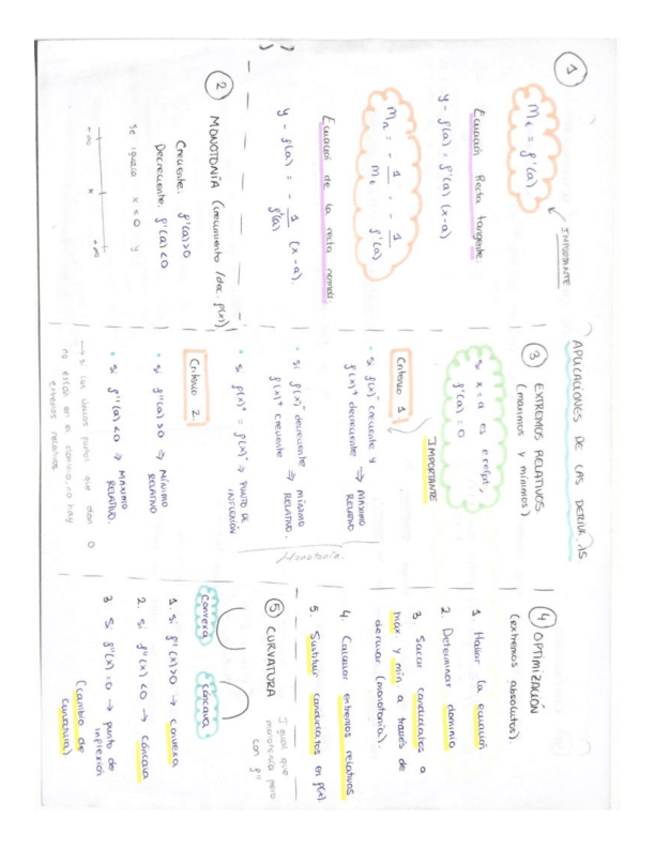 APLICACIONES DE LAS DERIVADAS
①
mt = f'(a)
IMPORTANTE
Ecuación Recta tangente:
y - f(a) = f'(a) (x-a)
mn = - 1/mt = - 1/f'(a)
Ecuación de la recta normal:
y - f(a) = - 1/f'(a) (x-a).
② MONOTONÍA (crecimiento /dec. f(x))
Creciente: f'(a)>0
Decreciente: f'(a)<0
se iguala x=0 y
-∞ x +∞
③ EXTREMOS RELATIVOS
(máximos y mínimos)
Si x=a es
f'(a) = 0
IMPORTANTE
Criterio 1
• Si f(x)⁻ creciente y
f(x)⁺ decreciente → MÁXIMO RELATIVO
• Si f(x)⁻ decreciente
f(x)⁺ creciente ⇒ MÍNIMO RELATIVO.
• Si f(x)⁺ = f(x)⁻ → PUNTO DE INFLEXIÓN
Monotonía.
Criterio 2.
• Si f''(a) >0 ⇒ MÍNIMO RELATIVO
• Si f''(a) <0 ⇒ MÁXIMO RELATIVO.
→ Si los únicos puntos que dan 0
no están en el dominio, no hay
extremos relativos
④ OPTIMIZACIÓN
(extremos absolutos).
1. Hallar la ecuación
2. Determinar dominio
3. Sacar candidatos a
máx. y mín. a través de
derivar (monotonía).
4. Calcular extremos relativos
5. Sustituir candidatos en f(x)
⑤ CURVATURA
Igual que
monotonía pero
con f''
convexa cóncava
1. Si f''(x)>0 → convexa
2. Si f''(x) <0 → cóncava
3 Si f''(x) =0 → punto de
inflexión
(cambio de
curvatura)